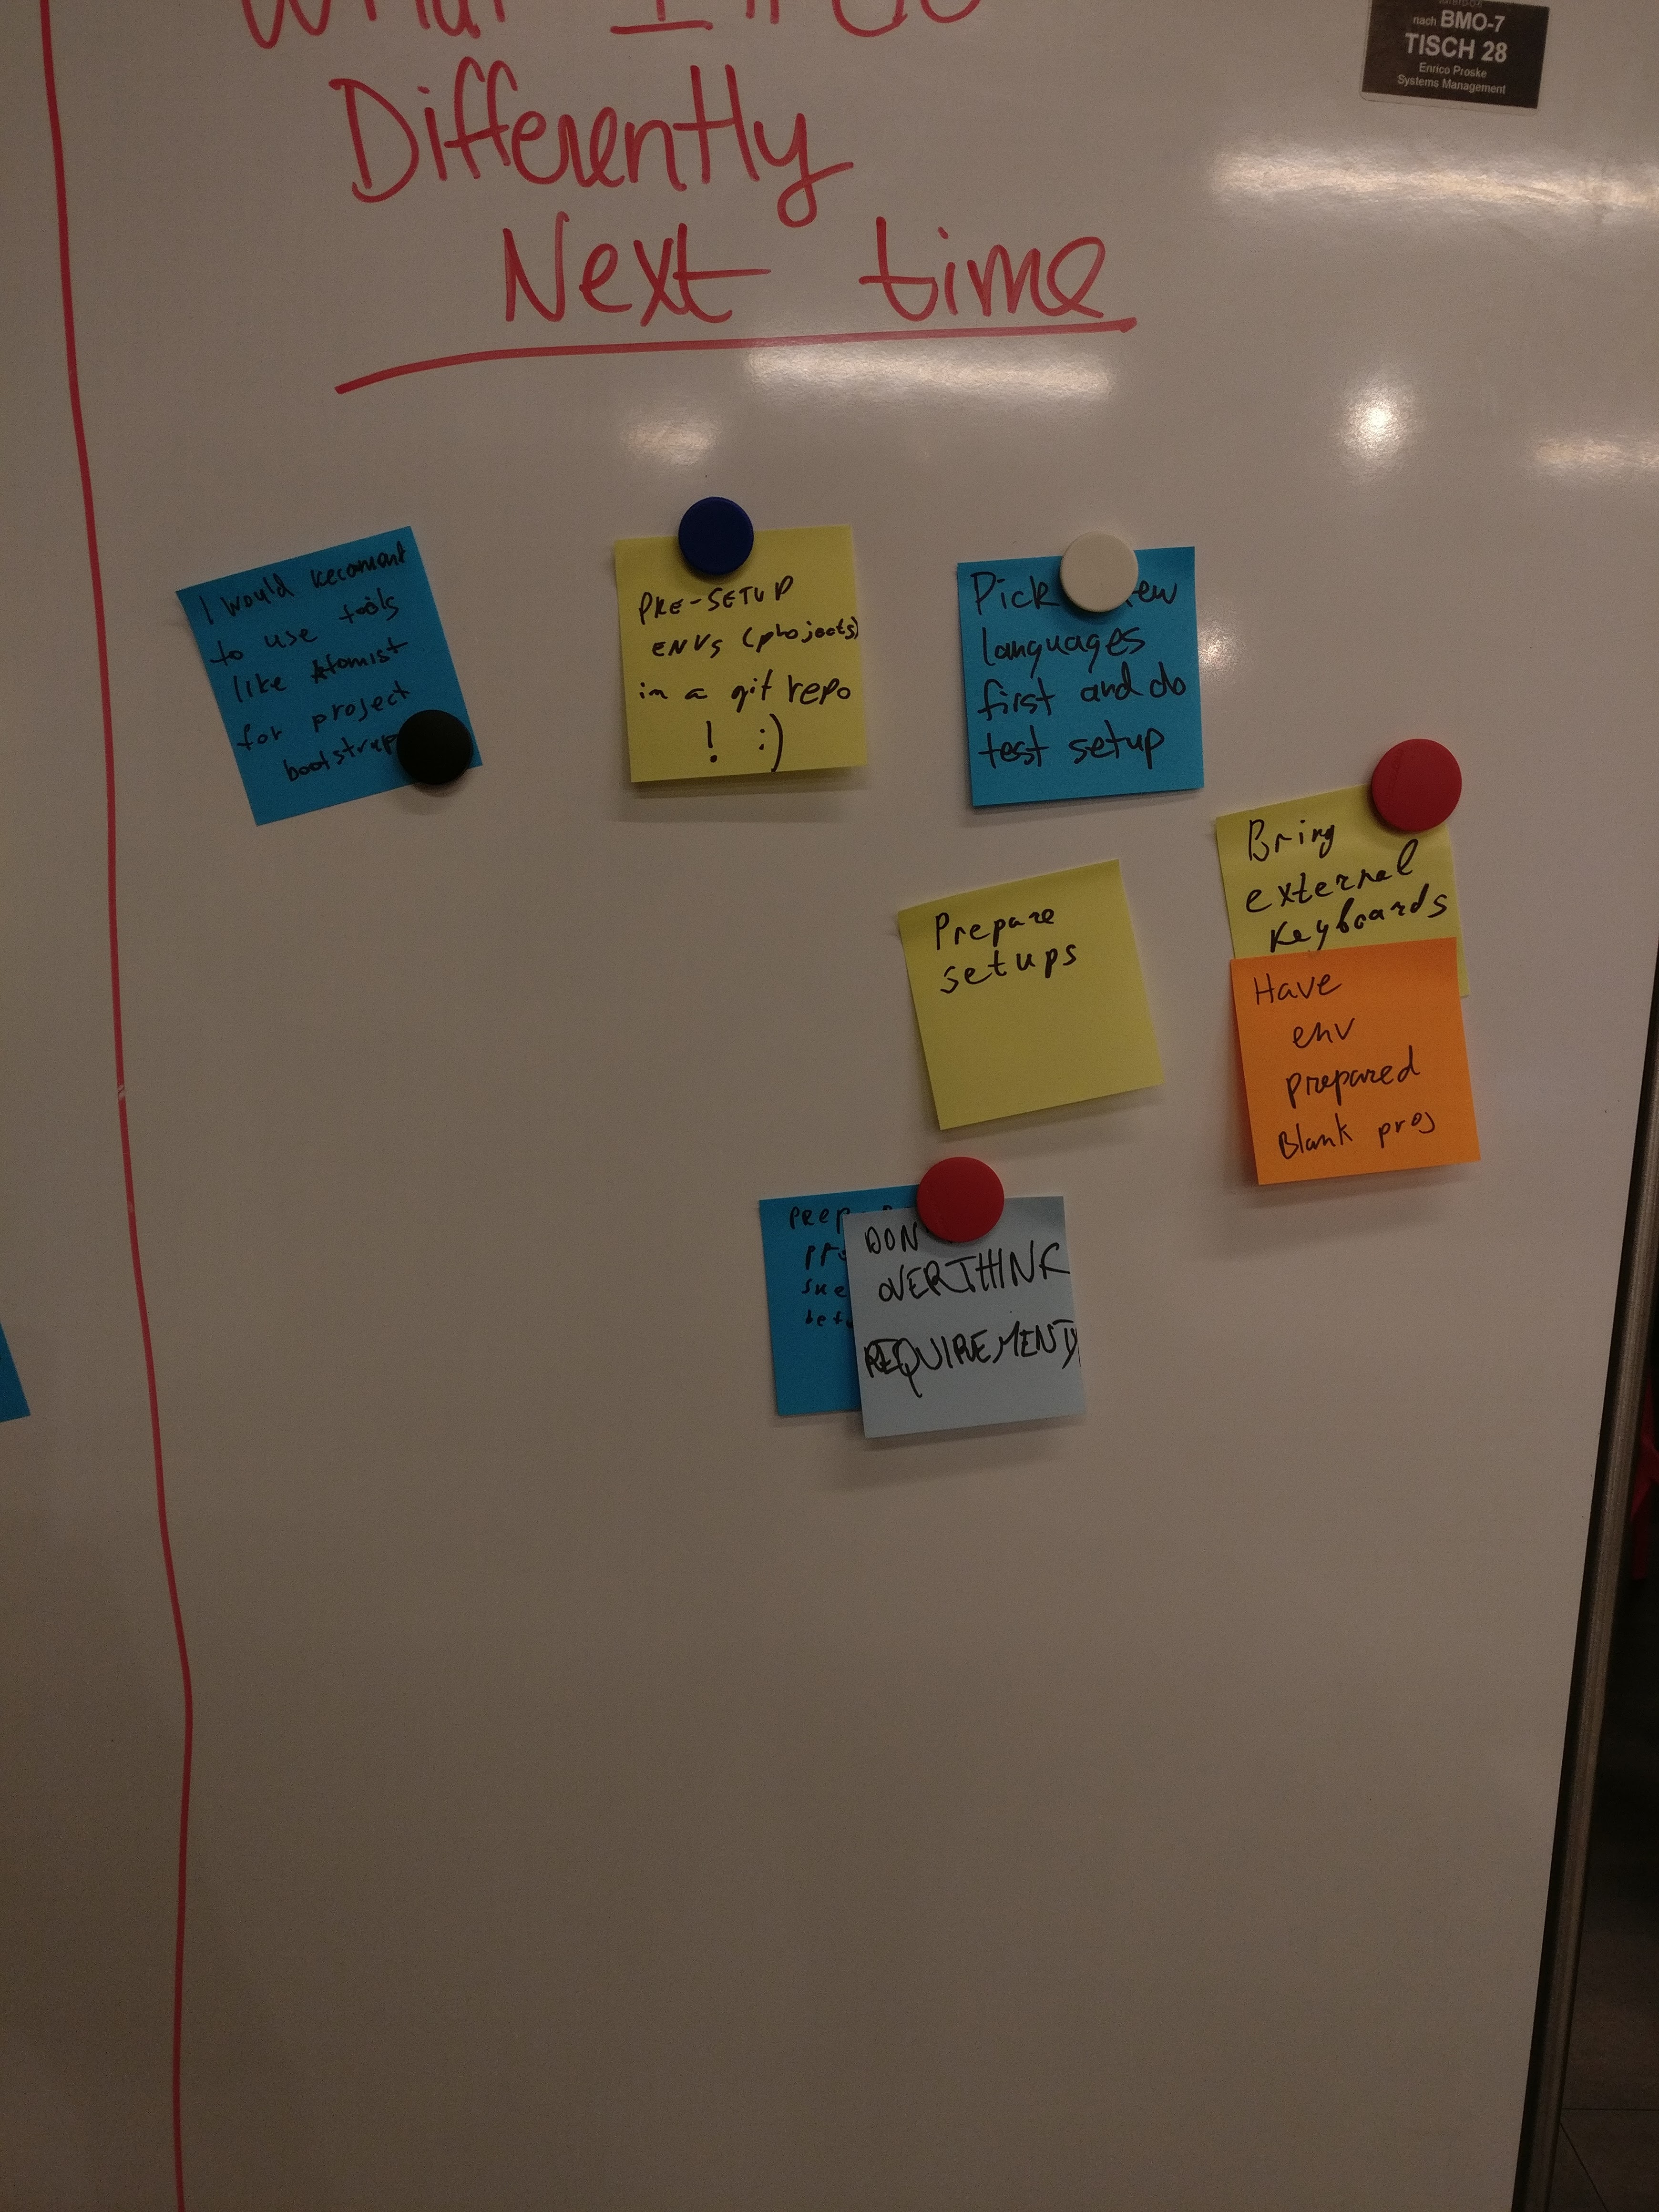 What I'll do
Differently
Next time
nach BMO-7
TISCH 28
Enrico Proske
Systems Management
I would recomment
to use tools
like Atomist
for project
bootstrap
PRE-SETUP
ENVS (projects)
in a git repo
! :)
Pick
languages
first and do
test setup
Bring
external
keyboards
Prepare
setups
Have
env
prepared
Blank proj
DON
OVERTHINK
REQUIREMENTS